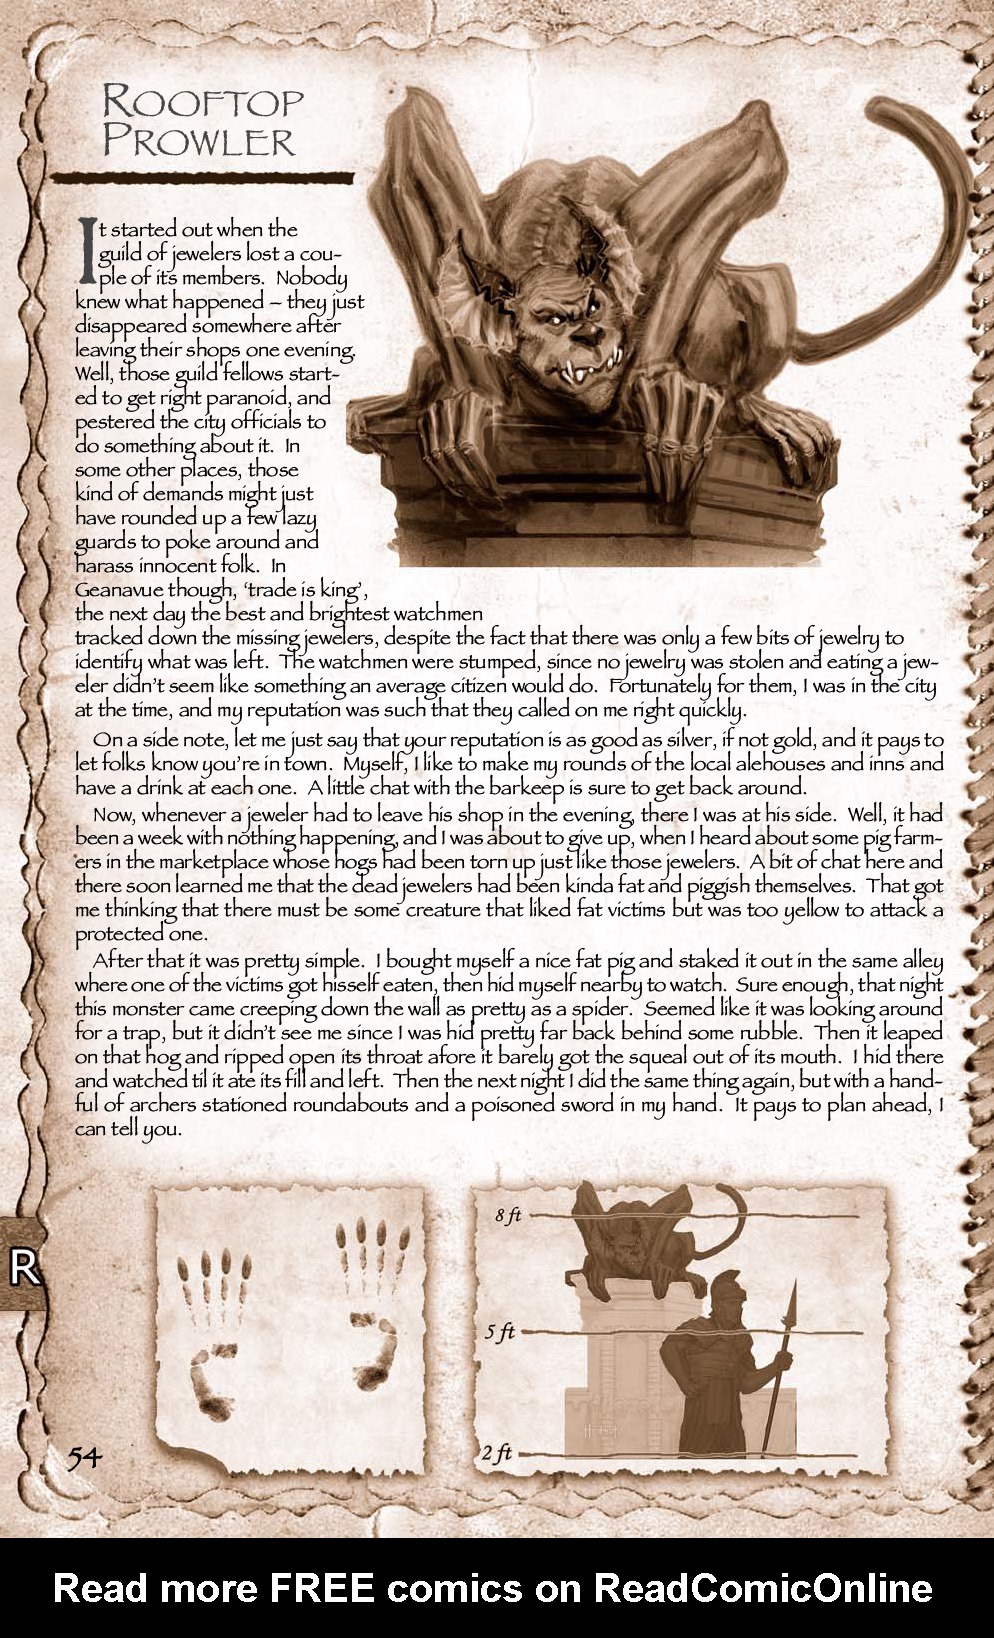 ROOFTOP
PROWLER
It started out when the
guild of jewelers lost a cou-
ple of its members.  Nobody
knew what happened – they just
disappeared somewhere after
leaving their shops one evening.
Well, those guild fellows start-
ed to get right paranoid, and
pestered the city officials to
do something about it.  In
some other places, those
kind of demands might just
have rounded up a few lazy
guards to poke around and
harass innocent folk.  In
Geanavue though, ‘trade is king’,
the next day the best and brightest watchmen
tracked down the missing jewelers, despite the fact that there was only a few bits of jewelry to
identify what was left.  The watchmen were stumped, since no jewelry was stolen and eating a jew-
eler didn’t seem like something an average citizen would do.  Fortunately for them, I was in the city
at the time, and my reputation was such that they called on me right quickly.
On a side note, let me just say that your reputation is as good as silver, if not gold, and it pays to
let folks know you’re in town.  Myself, I like to make my rounds of the local alehouses and inns and
have a drink at each one.  A little chat with the barkeep is sure to get back around.
Now, whenever a jeweler had to leave his shop in the evening, there I was at his side.  Well, it had
been a week with nothing happening, and I was about to give up, when I heard about some pig farm-
ers in the marketplace whose hogs had been torn up just like those jewelers.  A bit of chat here and
there soon learned me that the dead jewelers had been kinda fat and piggish themselves.  That got
me thinking that there must be some creature that liked fat victims but was too yellow to attack a
protected one.
After that it was pretty simple.  I bought myself a nice fat pig and staked it out in the same alley
where one of the victims got hisself eaten, then hid myself nearby to watch.  Sure enough, that night
this monster came creeping down the wall as pretty as a spider.  Seemed like it was looking around
for a trap, but it didn’t see me since I was hid pretty far back behind some rubble.  Then it leaped
on that hog and ripped open its throat afore it barely got the squeal out of its mouth.  I hid there
and watched til it ate its fill and left.  Then the next night I did the same thing again, but with a hand-
ful of archers stationed roundabouts and a poisoned sword in my hand.  It pays to plan ahead, I
can tell you.
8 ft
R
5 ft
54
2 ft
Read more FREE comics on ReadComicOnline